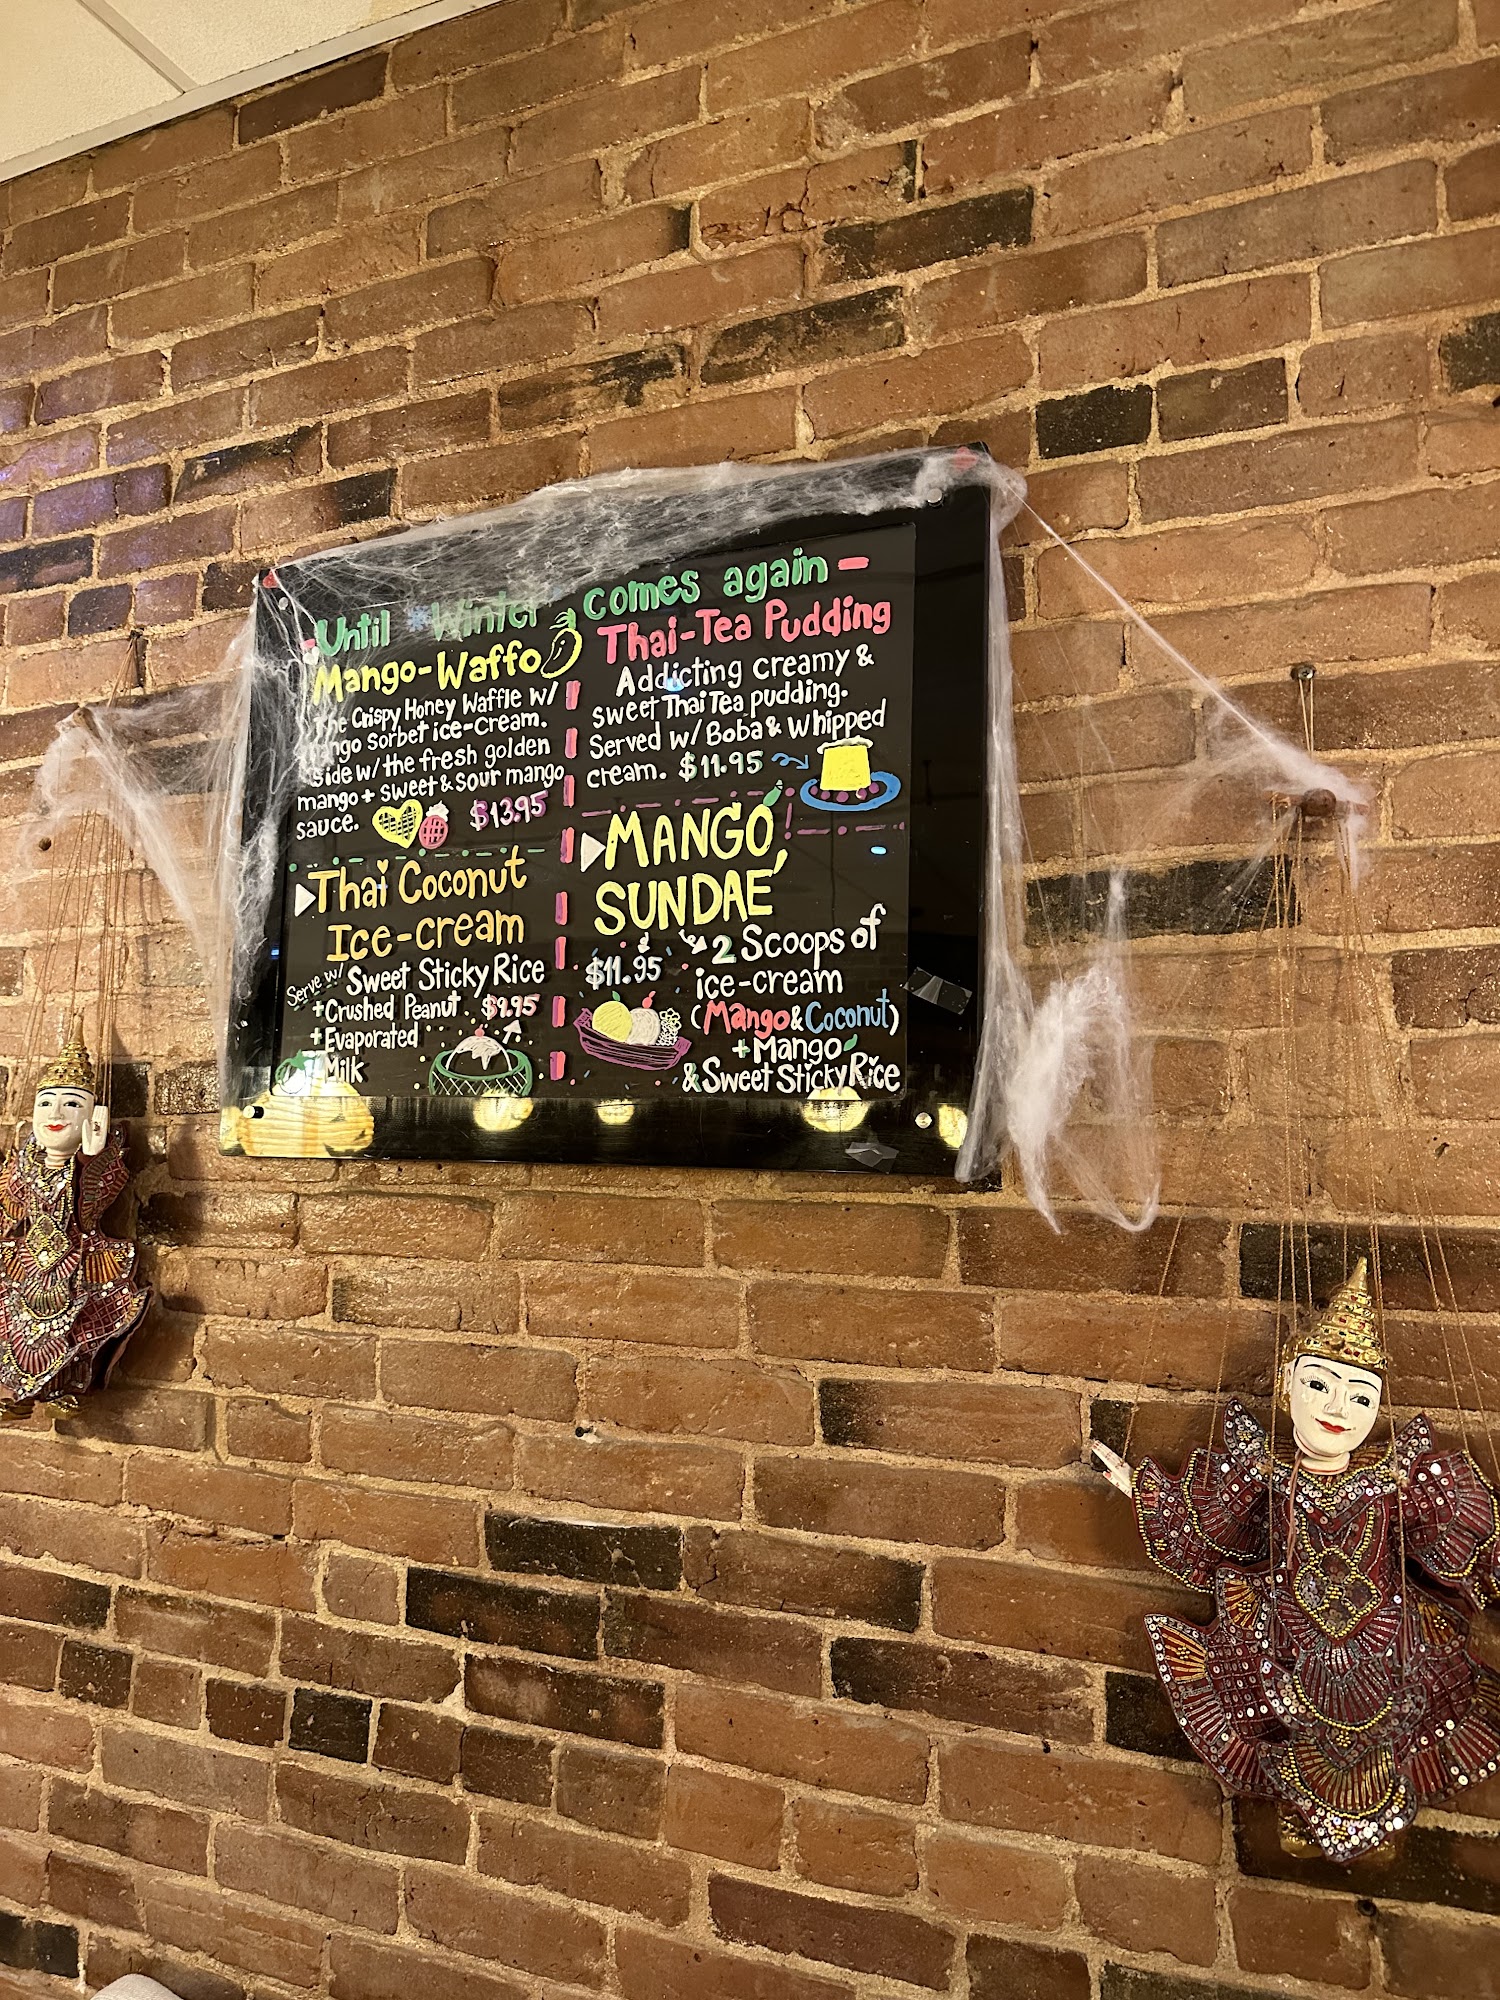 -Until Winter comes again-
Mango-Waffo
The Crispy Honey Waffle w/
Mango Sorbet ice-cream.
Side w/ the fresh golden
mango + sweet & sour mango
sauce. $13.95
Thai Coconut
Ice-cream
Serve w/ Sweet Sticky Rice
+Crushed Peanut. $9.95
+Evaporated
Milk
Thai-Tea Pudding
Addicting creamy &
sweet Thai Tea pudding.
Served w/ Boba & whipped
cream. $11.95
MANGO
SUNDAE
$11.95 2 Scoops of
ice-cream
(Mango & Coconut)
+Mango
& Sweet Sticky Rice